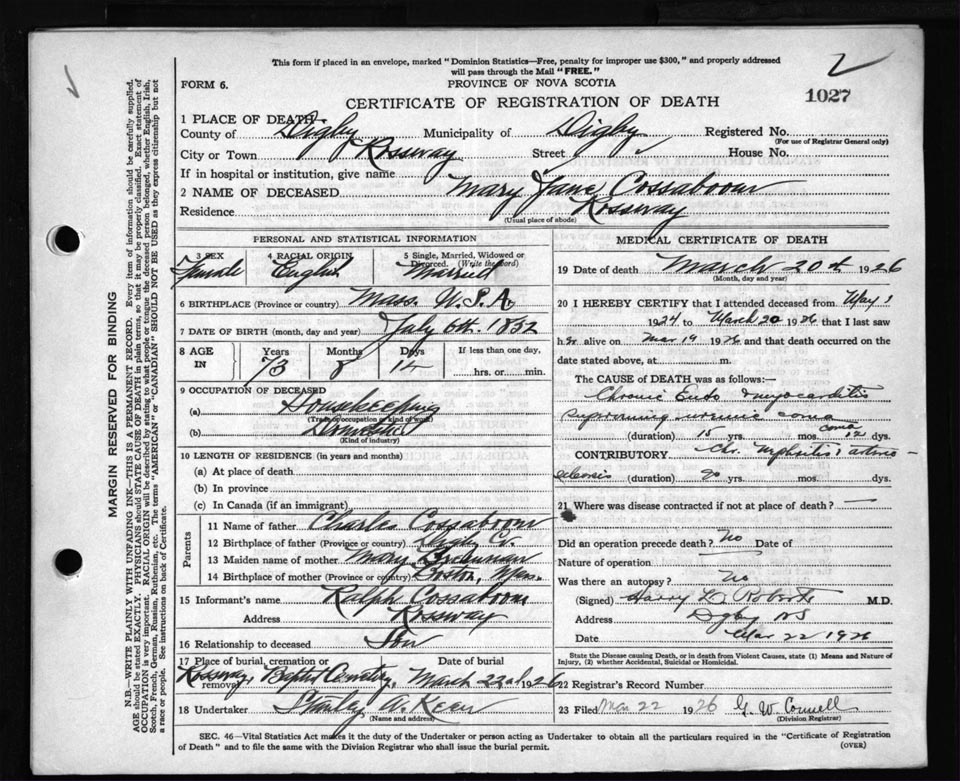 This form if placed in an envelope, marked "Dominion Statistics—Free, penalty for improper use $300," and properly addressed
will pass through the Mail "FREE."
2
FORM 6.
PROVINCE OF NOVA SCOTIA
CERTIFICATE OF REGISTRATION OF DEATH
1027
1 PLACE OF DEATH—
County of Digby Municipality of Digby Registered No.
(For use of Registrar General only)
City or Town Rossway Street House No.
If in hospital or institution, give name
2 NAME OF DECEASED Mary Jane Cossaboom
Residence Rossway
(Usual place of abode)
PERSONAL AND STATISTICAL INFORMATION
3 SEX 4 RACIAL ORIGIN 5 Single, Married, Widowed or
Divorced. (Write the word)
Female English Married
6 BIRTHPLACE (Province or country) Mass. U.S.A.
7 DATE OF BIRTH (month, day and year) July 6th. 1852
8 AGE IN Years Months Days If less than one day,
73 8 14 hrs. or min.
9 OCCUPATION OF DECEASED
(a) Housekeeping
(Trade or occupation or kind of work)
(b) Domestic
(Kind of industry)
10 LENGTH OF RESIDENCE (in years and months)
(a) At place of death
(b) In province
(c) In Canada (if an immigrant)
Parents
11 Name of father Charles Cossaboom
12 Birthplace of father (Province or country) Digby Co.
13 Maiden name of mother Mary Freeman
14 Birthplace of mother (Province or country) Boston, Mass.
15 Informant's name Ralph Cossaboom
Address Rossway
16 Relationship to deceased Son
17 Place of burial, cremation or removal Date of burial
Rossway Baptist Cemetery, March 22nd 1926
18 Undertaker Stanley A. Keen
(Name and address)
MEDICAL CERTIFICATE OF DEATH
19 Date of death March 20th 1926
(Month, day and year)
20 I HEREBY CERTIFY that I attended deceased from May 1
1924 to March 20 1926 that I last saw
her alive on Mar 19 1926 and that death occurred on the
date stated above, at m.
The CAUSE of DEATH was as follows:—
Chronic Endo myocarditis
supervening uremic coma
(duration) 15 yrs. mos. coma 12 dys.
CONTRIBUTORY Chr. Nephritis & arterio-
sclerosis (duration) 20 yrs. mos. dys.
21 Where was disease contracted if not at place of death? —
Did an operation precede death? No Date of
Nature of operation
Was there an autopsy? No
(Signed) Harry L. Roberts M.D.
Address Digby NS
Date Mar 22 1926
State the Disease causing Death, or in death from Violent Causes, state (1) Means and Nature of
Injury, (2) whether Accidental, Suicidal or Homicidal.
22 Registrar's Record Number
23 Filed Mar 22 1926 G. W. Connell
(Division Registrar)
SEC. 46—Vital Statistics Act makes it the duty of the Undertaker or person acting as Undertaker to obtain all the particulars required in the "Certificate of Registration
of Death" and to file the same with the Division Registrar who shall issue the burial permit.
(OVER)
MARGIN RESERVED FOR BINDING
N.B.—WRITE PLAINLY WITH UNFADING INK—THIS IS A PERMANENT RECORD. Every item of information should be carefully supplied.
AGE should be stated EXACTLY. PHYSICIANS should STATE CAUSE OF DEATH in plain terms, so that it may be properly classified. Exact statement of
OCCUPATION is very important. RACIAL ORIGIN will be described by stating to what people or tongue the deceased person belonged, whether English, Irish,
Scotch, French, German, Russian, Ruthenian, etc. The terms "AMERICAN" or "CANADIAN" SHOULD NOT BE USED as they express citizenship but not
a race or people. See instructions on back of Certificate.